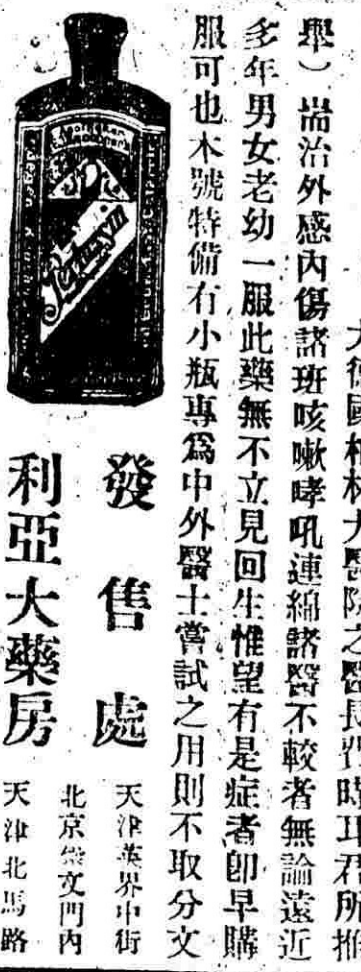 大德國柏林大醫院之醫長狄時耳君所推
舉）耑治外感內傷諸班咳嗽哮吼連綿諸醫不較者無論遠近
多年男女老幼一服此藥無不立見回生惟望有是症者卽早購
服可也本號特備有小瓶專爲中外醫士嘗試之用則不取分文
發售處
天津英界中街
北京崇文門內
天津北馬路
利亞大藥房